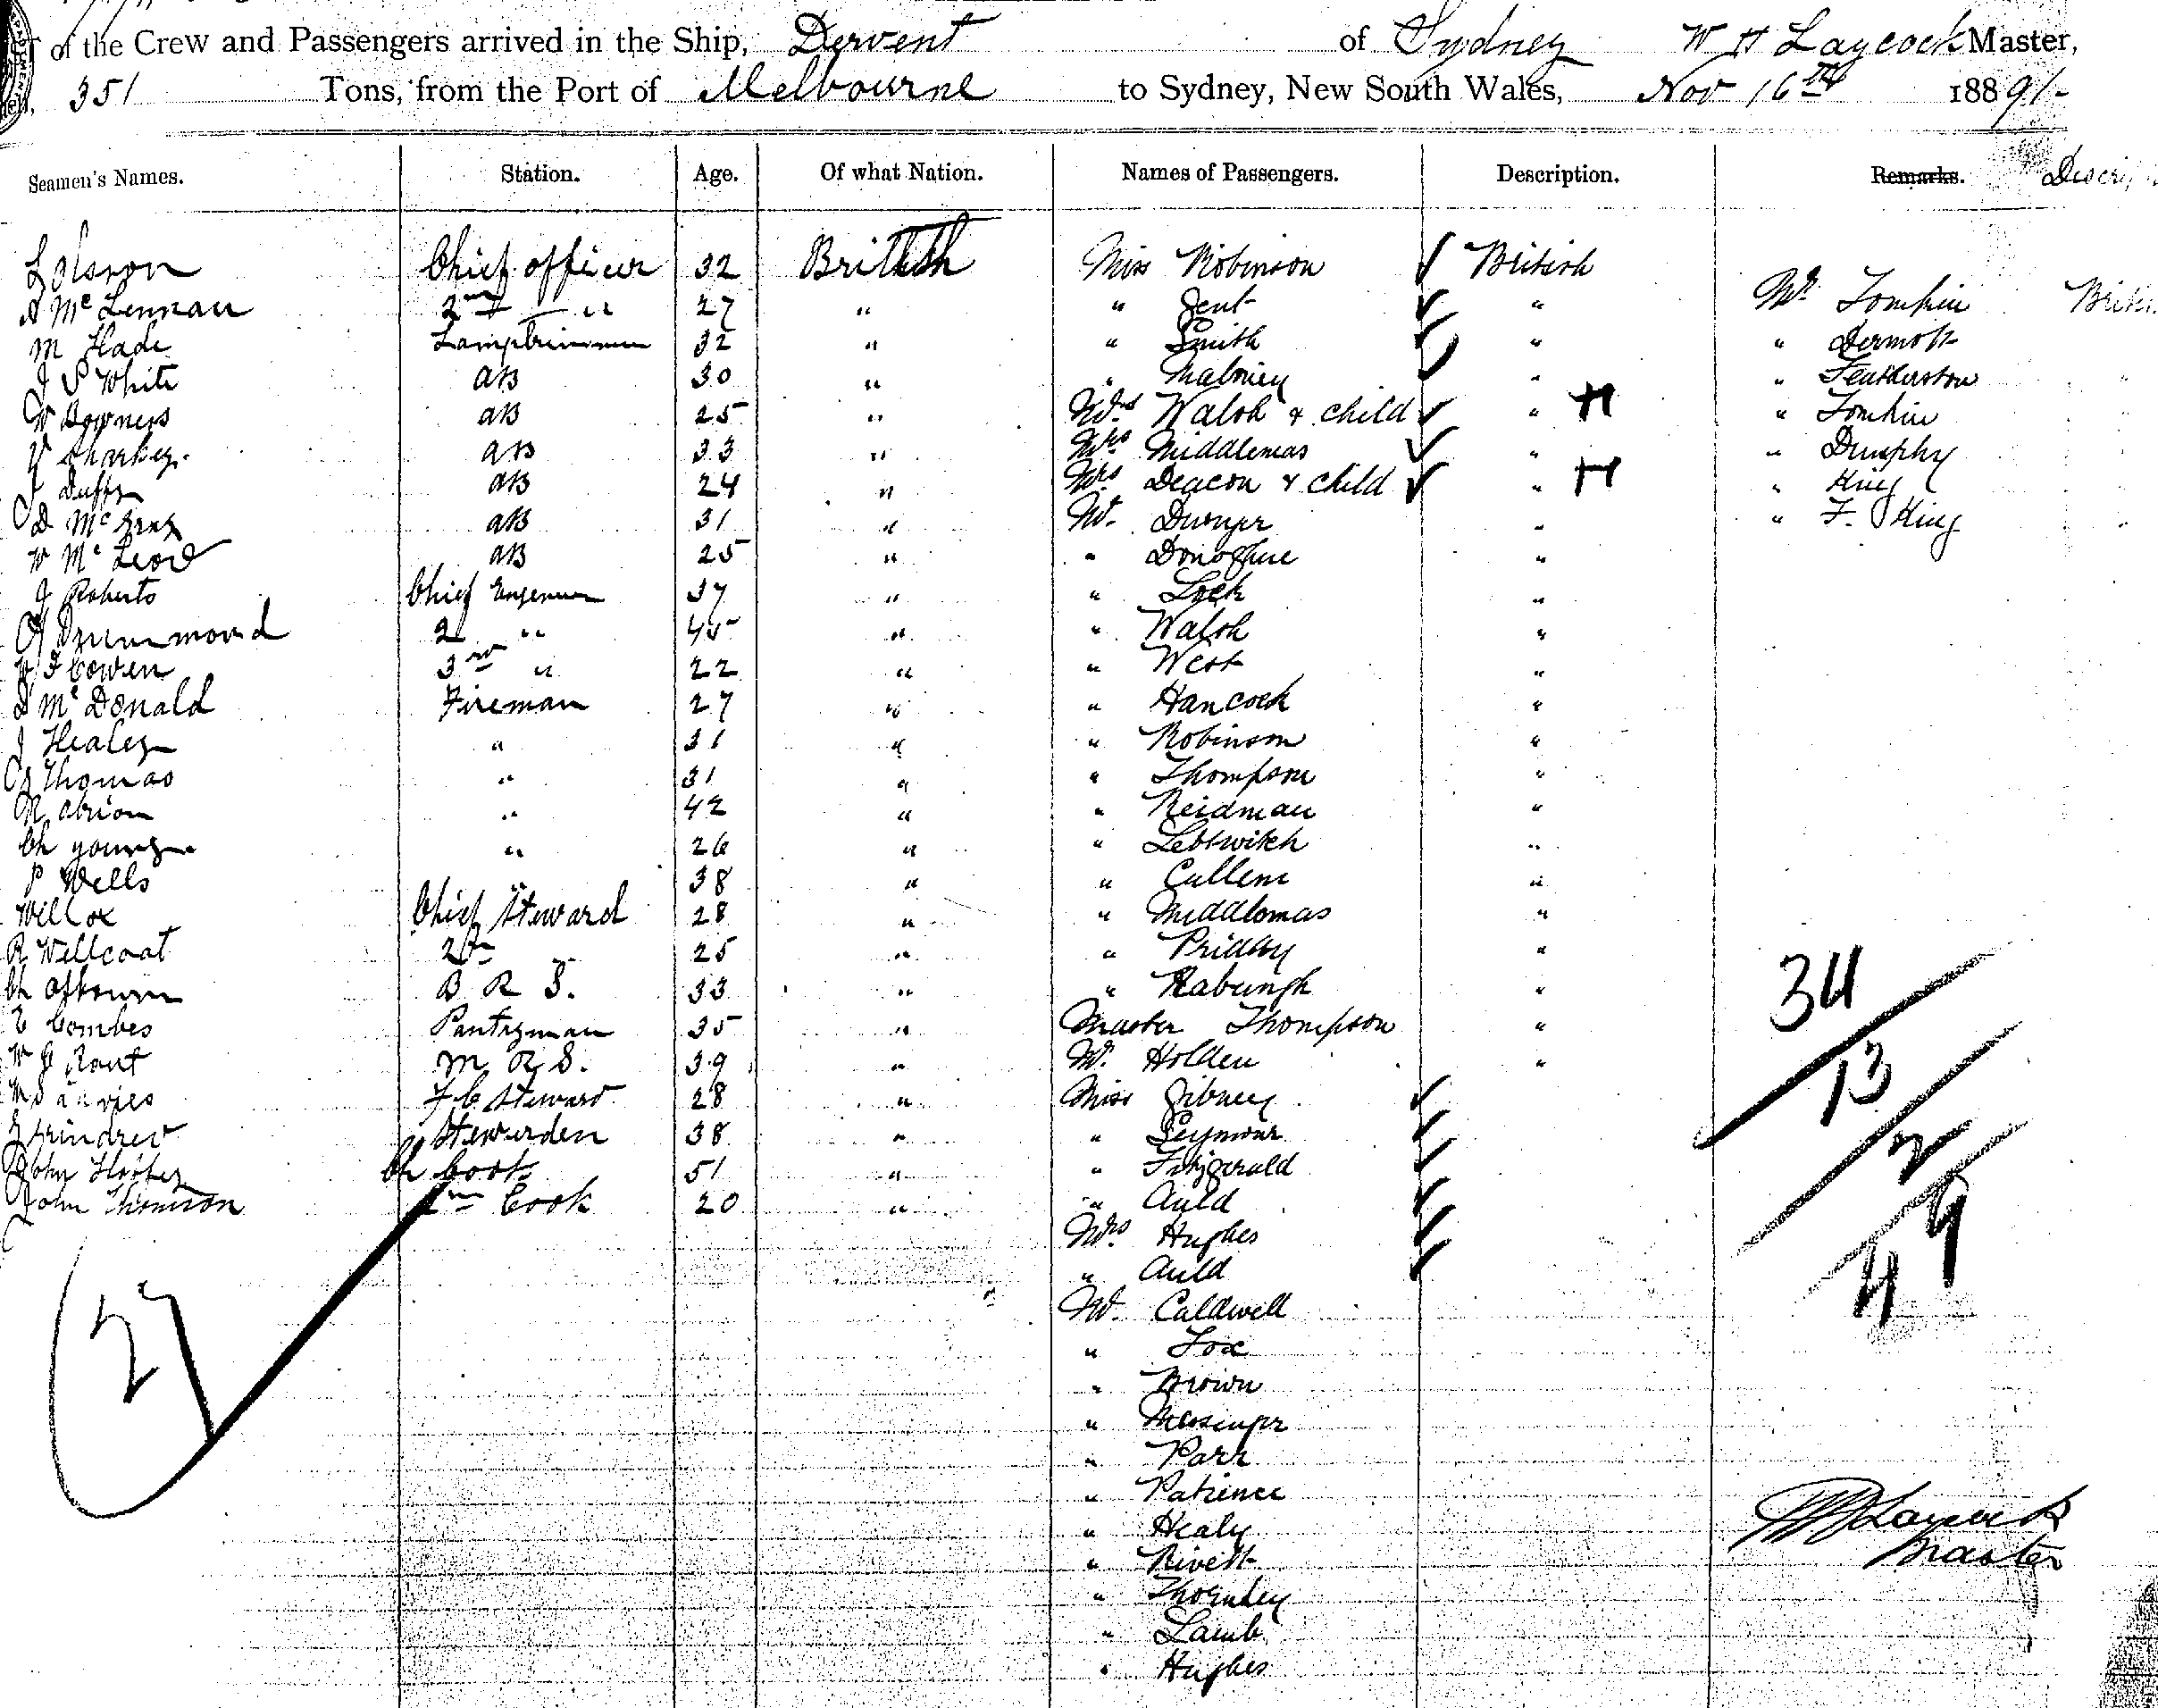 of the Crew and Passengers arrived in the Ship, Dervent of Sydney W H Laycock Master,
351 Tons, from the Port of Melbourne to Sydney, New South Wales, Nov 16th 1889/-
Seamen's Names. Station. Age. Of what Nation. Names of Passengers. Description. Remarks.
Chief officer 32 British Miss Robinson British
Mc Lennan 2nd " 27 " " Gent " Mr Tomkin
M Hade Lamptrimmer 32 " " Smith " " Dermott
J S White AB 30 " " Maloney " " Featherstow
W Bowners AB 25 " Mrs Walsh & child " H " Tomkin
Sharkey AB 33 " Mrs Middlemas " " Dunphy
J Duffy AB 24 " Mrs Deacon & child " H " King
D Mc AB 31 " Mr Dwnyer " " F. King
W Mc Leod AB 25 " " Donoghue "
J Roberts Chief Engeneer 37 " " Lock "
Drummond 2 " 45 " " Walsh "
Cowen 3rd " 22 " " West "
D Mc Donald Fireman 27 " " Hancock "
J Healey " 31 " " Robinson "
Thomas " 31 " " Thompson "
" 42 " " Reidman "
Ch young " 26 " " Lebswitch "
P Wells " 38 " " Cullem "
Willox Chief Steward 28 " " Middlomas "
R Wellcoat 2nd 25 " " Pridday "
B R S. 33 " "
E Combes Pantryman 35 " Master Thompson "
M R S. 39 " Mr Holden "
F C Steward 28 " Miss Gibney
Stewarden 38 " " Seymour
John Ch Cook 51 " " Fitzgerald
John Thomson 2nd Cook 20 " " Auld
Mrs Hughes
" Auld
Mr Caldwell
" Fox
" Brown
"
" Parr
" Patience
" Healy
" Rivett
" Thornley
" Lamb
" Hughes
27
34
13
2
49
W H Laycock
Master